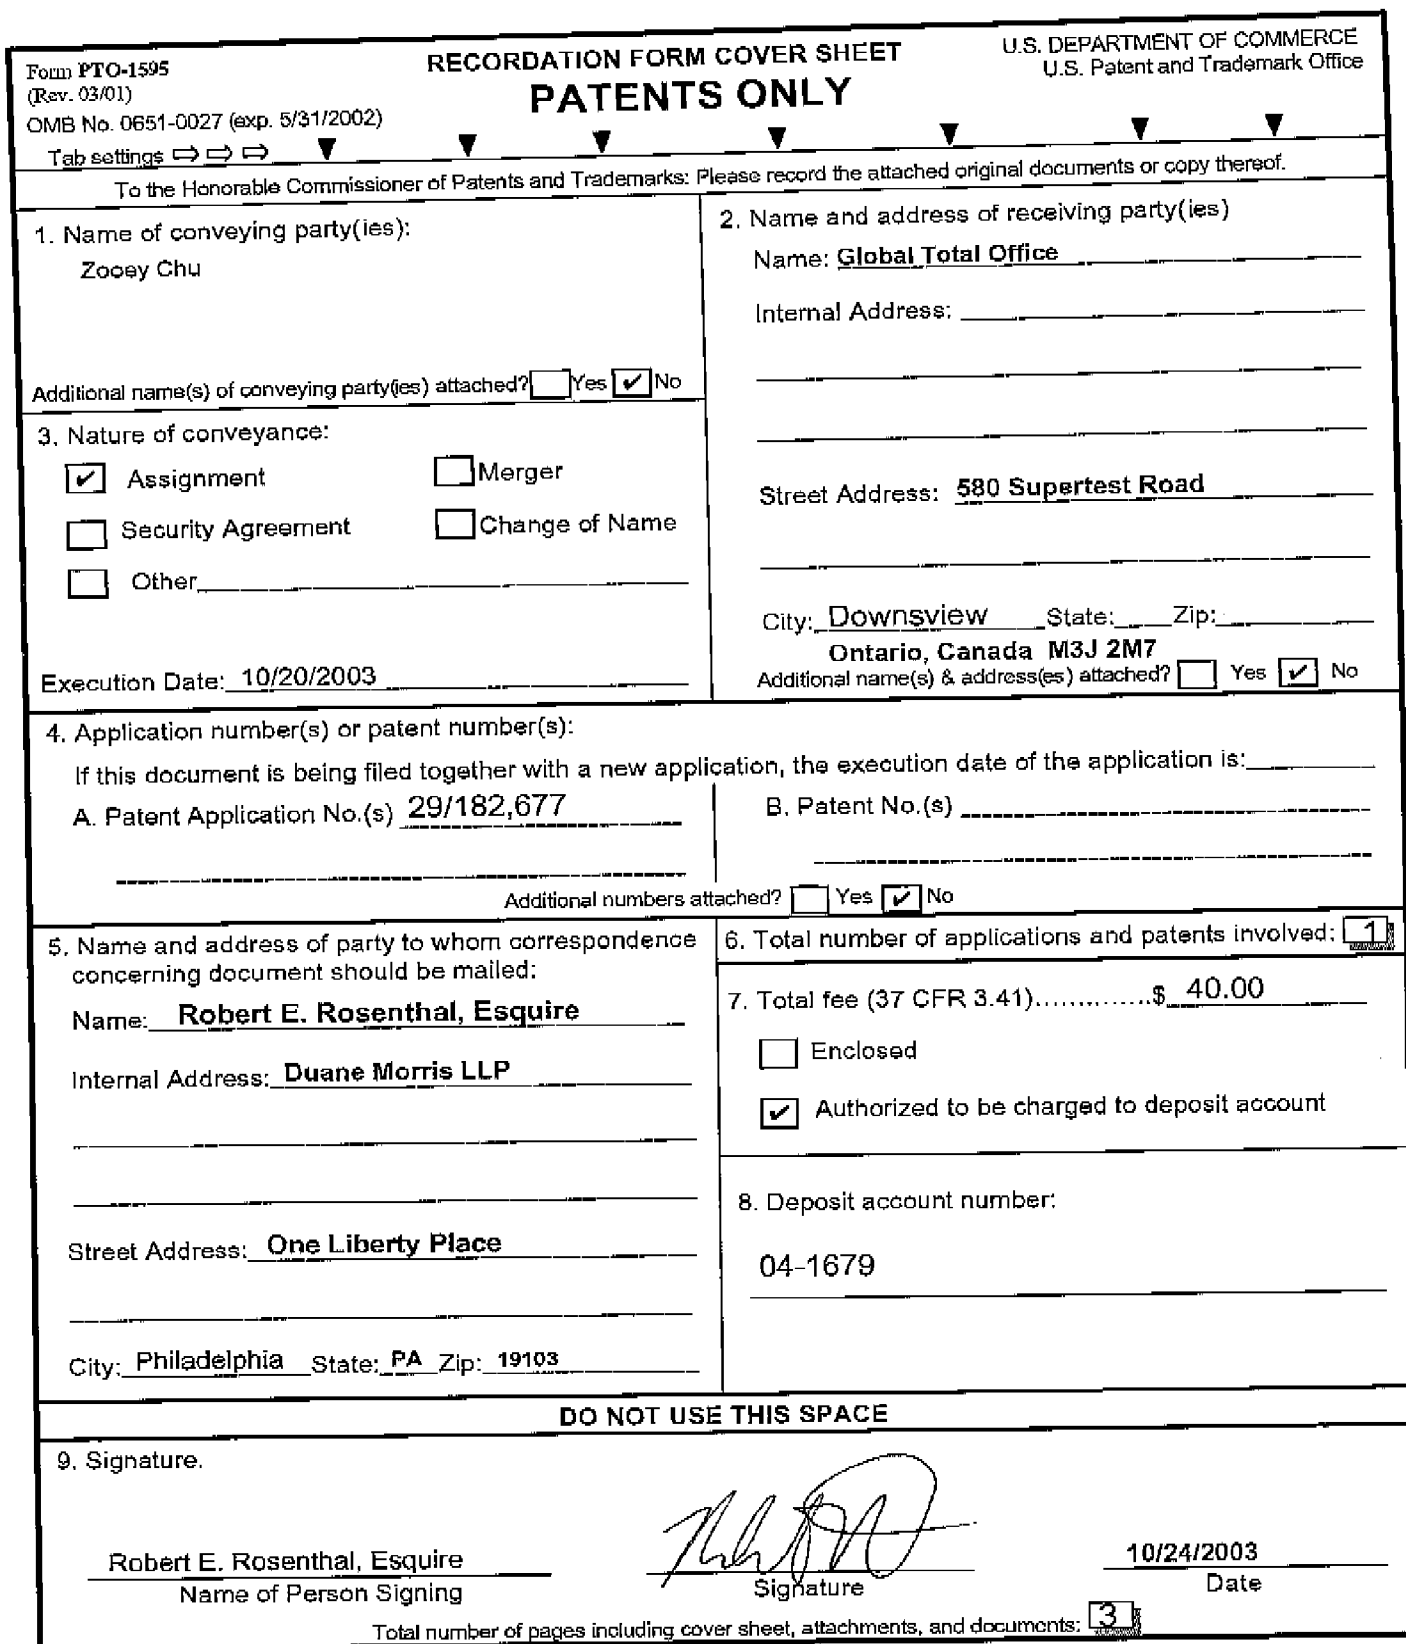 Form PTO-1595
(Rev. 03/01)
OMB No. 0651-0027 (exp. 5/31/2002)
Tab settings ⇨ ⇨ ⇨ ▼ ▼ ▼ ▼ ▼ ▼ ▼
RECORDATION FORM COVER SHEET
PATENTS ONLY
U.S. DEPARTMENT OF COMMERCE
U.S. Patent and Trademark Office
To the Honorable Commissioner of Patents and Trademarks: Please record the attached original documents or copy thereof.
1. Name of conveying party(ies):
Zooey Chu
Additional name(s) of conveying party(ies) attached? Yes ✔ No
2. Name and address of receiving party(ies)
Name: Global Total Office
Internal Address:
Street Address: 580 Supertest Road
City: Downsview State: Zip:
Ontario, Canada M3J 2M7
Additional name(s) & address(es) attached? Yes ✔ No
3. Nature of conveyance:
✔ Assignment Merger
Security Agreement Change of Name
Other
Execution Date: 10/20/2003
4. Application number(s) or patent number(s):
If this document is being filed together with a new application, the execution date of the application is:
A. Patent Application No.(s) 29/182,677
B. Patent No.(s)
Additional numbers attached? Yes ✔ No
5. Name and address of party to whom correspondence
concerning document should be mailed:
Name: Robert E. Rosenthal, Esquire
Internal Address: Duane Morris LLP
Street Address: One Liberty Place
City: Philadelphia State: PA Zip: 19103
6. Total number of applications and patents involved: 1
7. Total fee (37 CFR 3.41)..............$ 40.00
Enclosed
✔ Authorized to be charged to deposit account
8. Deposit account number:
04-1679
DO NOT USE THIS SPACE
9. Signature.
Robert E. Rosenthal, Esquire
Name of Person Signing
Signature
10/24/2003
Date
Total number of pages including cover sheet, attachments, and documents: 3